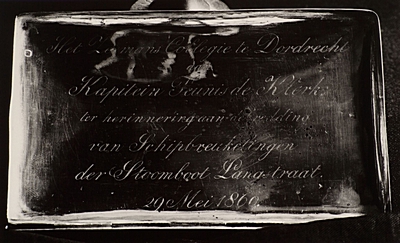 Het Zeemans Collegie te Dordrecht
Kapitein Teunis de Klerk
ter herinnering aan de redding
van Schipbreukelingen
der Stoomboot Langstraat.
29 Mei 1860